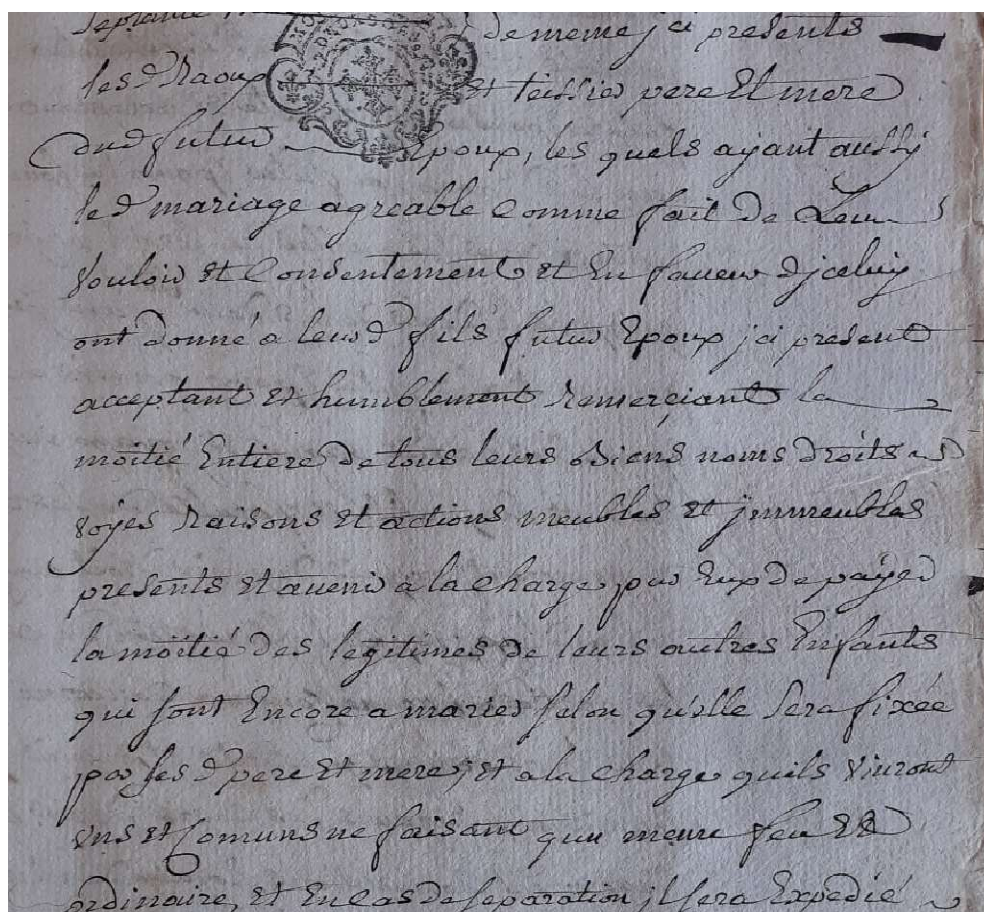 septante de meme jci presents
les d Raoux et teissier pere Et mere
dud futur Epoux, les quels ajant aussy
led mariage agreable Comme fait de Leurs
vouloir et Consentement et En faveur d'jceluy
ont donné a leurd fils futur Epoux jci present
acceptant et humblement Remerçiant la
moitié Entiere de tous leurs Biens noms droits
voyes Raisons et actions meubles et jmmeubles
presents et avenir a la Charge par Eux de payer
la moitié des legitimes de leurs autres Enfants
qui sont Encore a marier selon qu'elle sera fixée
par ses d pere et mere, et a la Charge quils vivront
uns et Comuns ne faisant quu meme feu et
ordinaire, et En Cas de separation jl sera Expedié